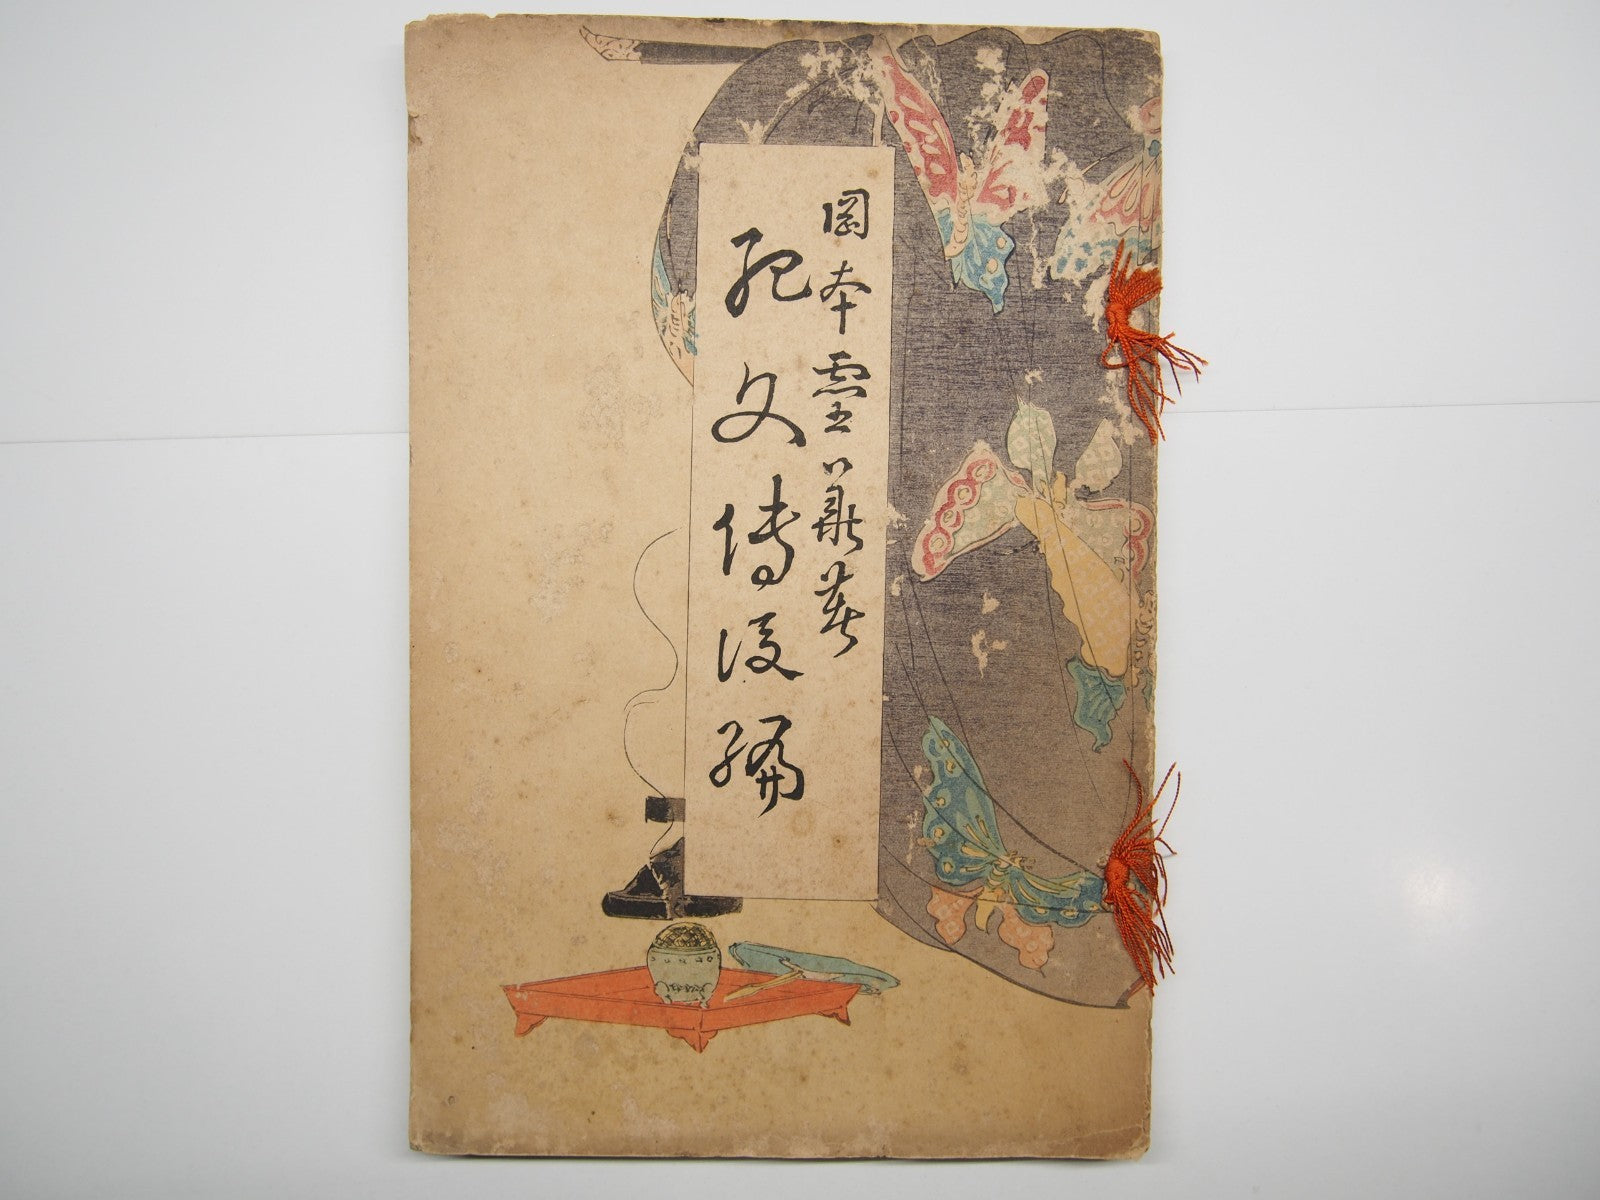 岡本靈華著
紀文傳後編